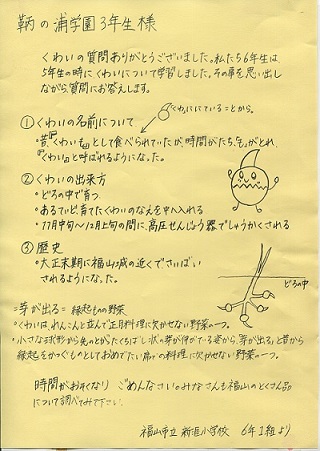 鞆の浦学園3年生様
くわいの質問ありがとうございました。私たち6年生は
5年生の時にくわいについて学習しました。その事を思い出し
ながら質問にお答えします。
①くわいの名前について
くわににていることから。
・昔、『くわいも』として食べられていたが、時間がたち、『も』がとれ、
『くわい』と呼ばれるようになった。
②くわいの出来方
・どろの中で育つ
・あるていど育てたくわいのなえを中へ入れる
・11月中旬〜12月上旬の間に、高圧せんじょう器でしゅうかくされる
③歴史
・大正末期に福山城の近くでさいばい
されるようになった。
どろの中
=芽が出る= 縁起もの野菜
・くわいは、れんこんと並んで正月料理に欠かせない野菜の一つ。
・小さな球形から先のとがったくちばし状の芽が伸びている姿から、「芽が出る」と昔から
縁起をかつぐものとしておめでたい席の料理に欠かせない野菜の一つ。
時間がおそくなり ごめんなさい。みなさんも福山のとくさん品
について調べてみて下さい。
福山市立 新涯小学校 6年1組より